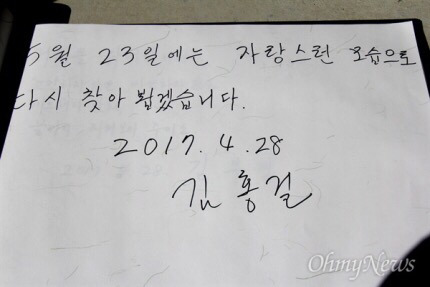 5월 23일에는 자랑스런 모습으로
다시 찾아 뵙겠습니다.
2017. 4. 28
김홍걸
OhmyNews